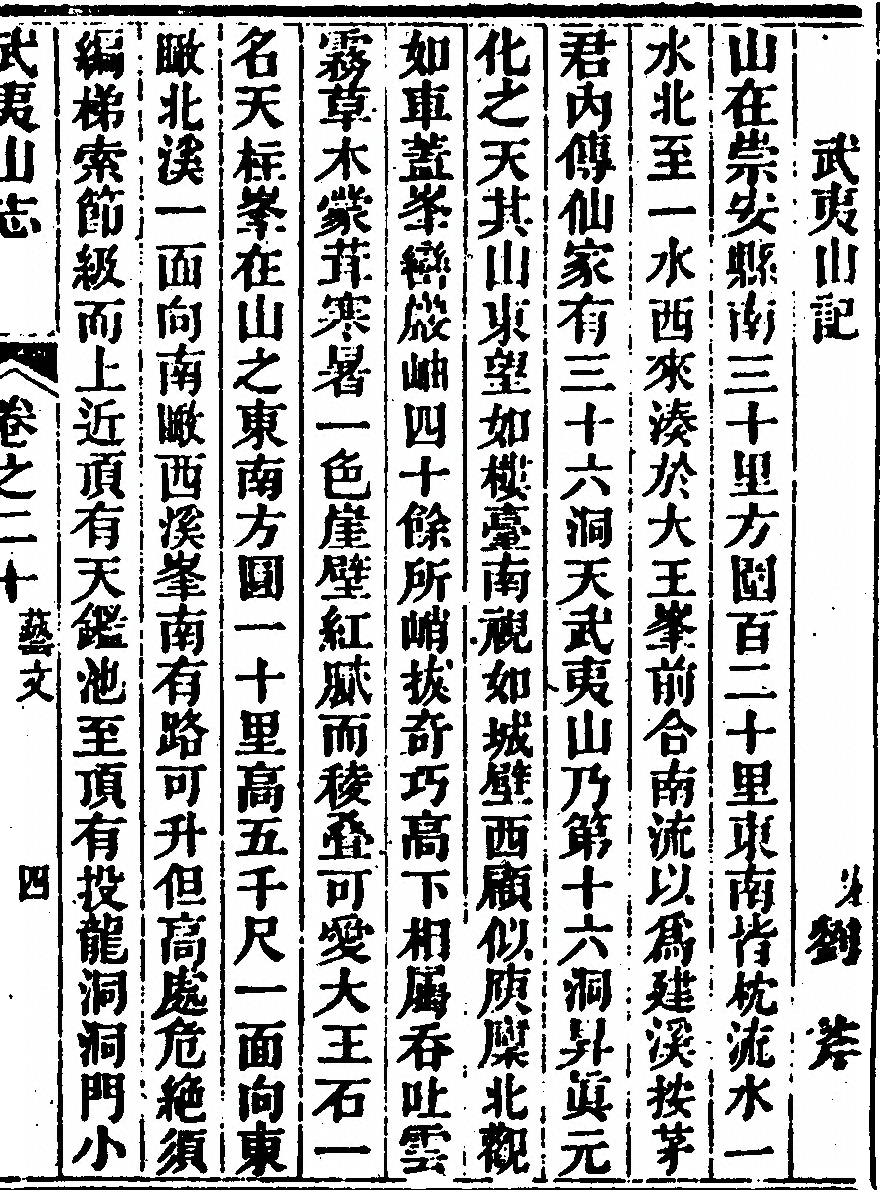 武夷山記
宋劉斧
山在崇安縣南三十里方圍百二十里東南皆枕流水一
水北至一水西來湊於大王峯前合南流以爲建溪按茅
君內傳仙家有三十六洞天武夷山乃第十六洞昇眞元
化之天其山東望如樓臺南視如城壁西顧似庾廩北觀
如車蓋峯巒巖岫四十餘所峭拔奇巧高下相屬吞吐雲
霧草木蒙茸寒暑一色崖壁紅膩而稜疊可愛大王石一
名天柱峯在山之東南方圓一十里高五千尺一面向東
瞰北溪一面向南瞰西溪峯南有路可升但高處危絶須
編梯索節級而上近頂有天鑑池至頂有投龍洞洞門小
武夷山志
卷之二十
藝文
四